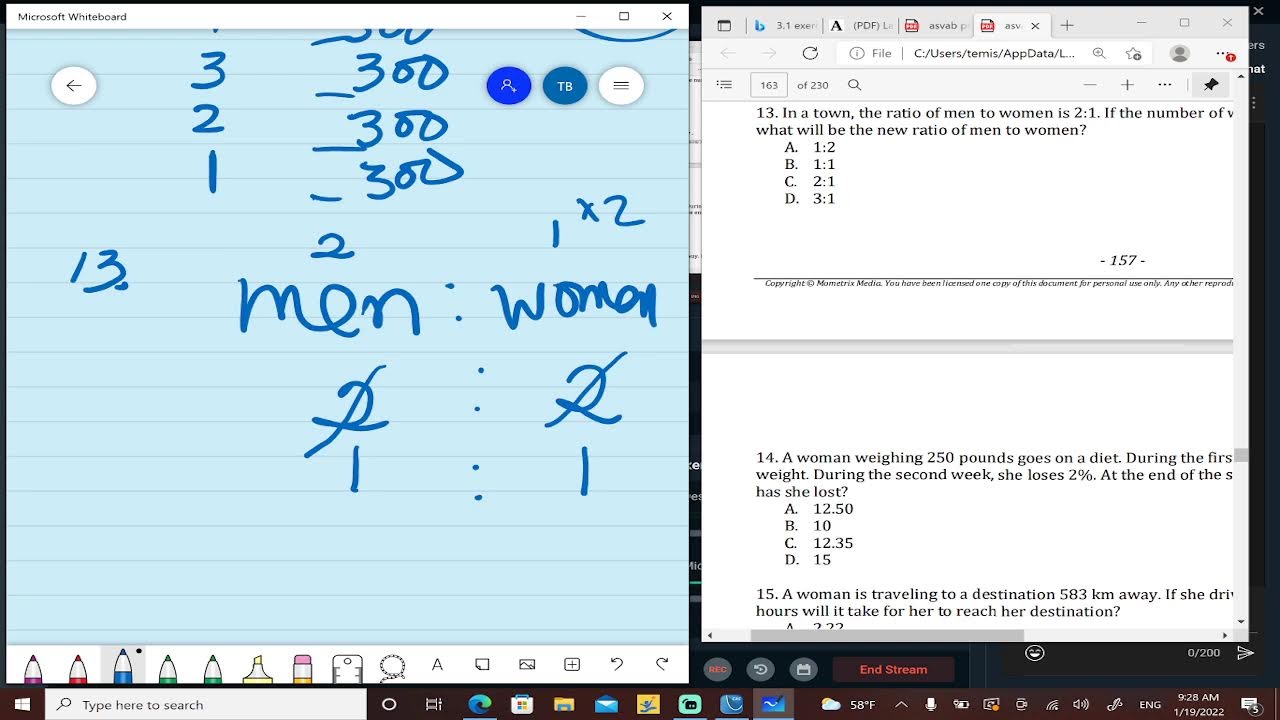 Microsoft Whiteboard
300
3 _300
2 _300
1 _300
1 ×2
2
13.
men : women
2 : 2
1 : 1
TB
A
3.1 exer
(PDF) La
asvab p
asv
File
C:/Users/temis/AppData/L...
163 of 230
13. In a town, the ratio of men to women is 2:1. If the number of
what will be the new ratio of men to women?
A. 1:2
B. 1:1
C. 2:1
D. 3:1
- 157 -
Copyright © Mometrix Media. You have been licensed one copy of this document for personal use only. Any other reprodu
14. A woman weighing 250 pounds goes on a diet. During the firs
weight. During the second week, she loses 2%. At the end of the s
has she lost?
A. 12.50
B. 10
C. 12.35
D. 15
15. A woman is traveling to a destination 583 km away. If she driv
hours will it take for her to reach her destination?
A. 2.22
REC
End Stream
0/200
Type here to search
9:28 AM
1/19/2022
5